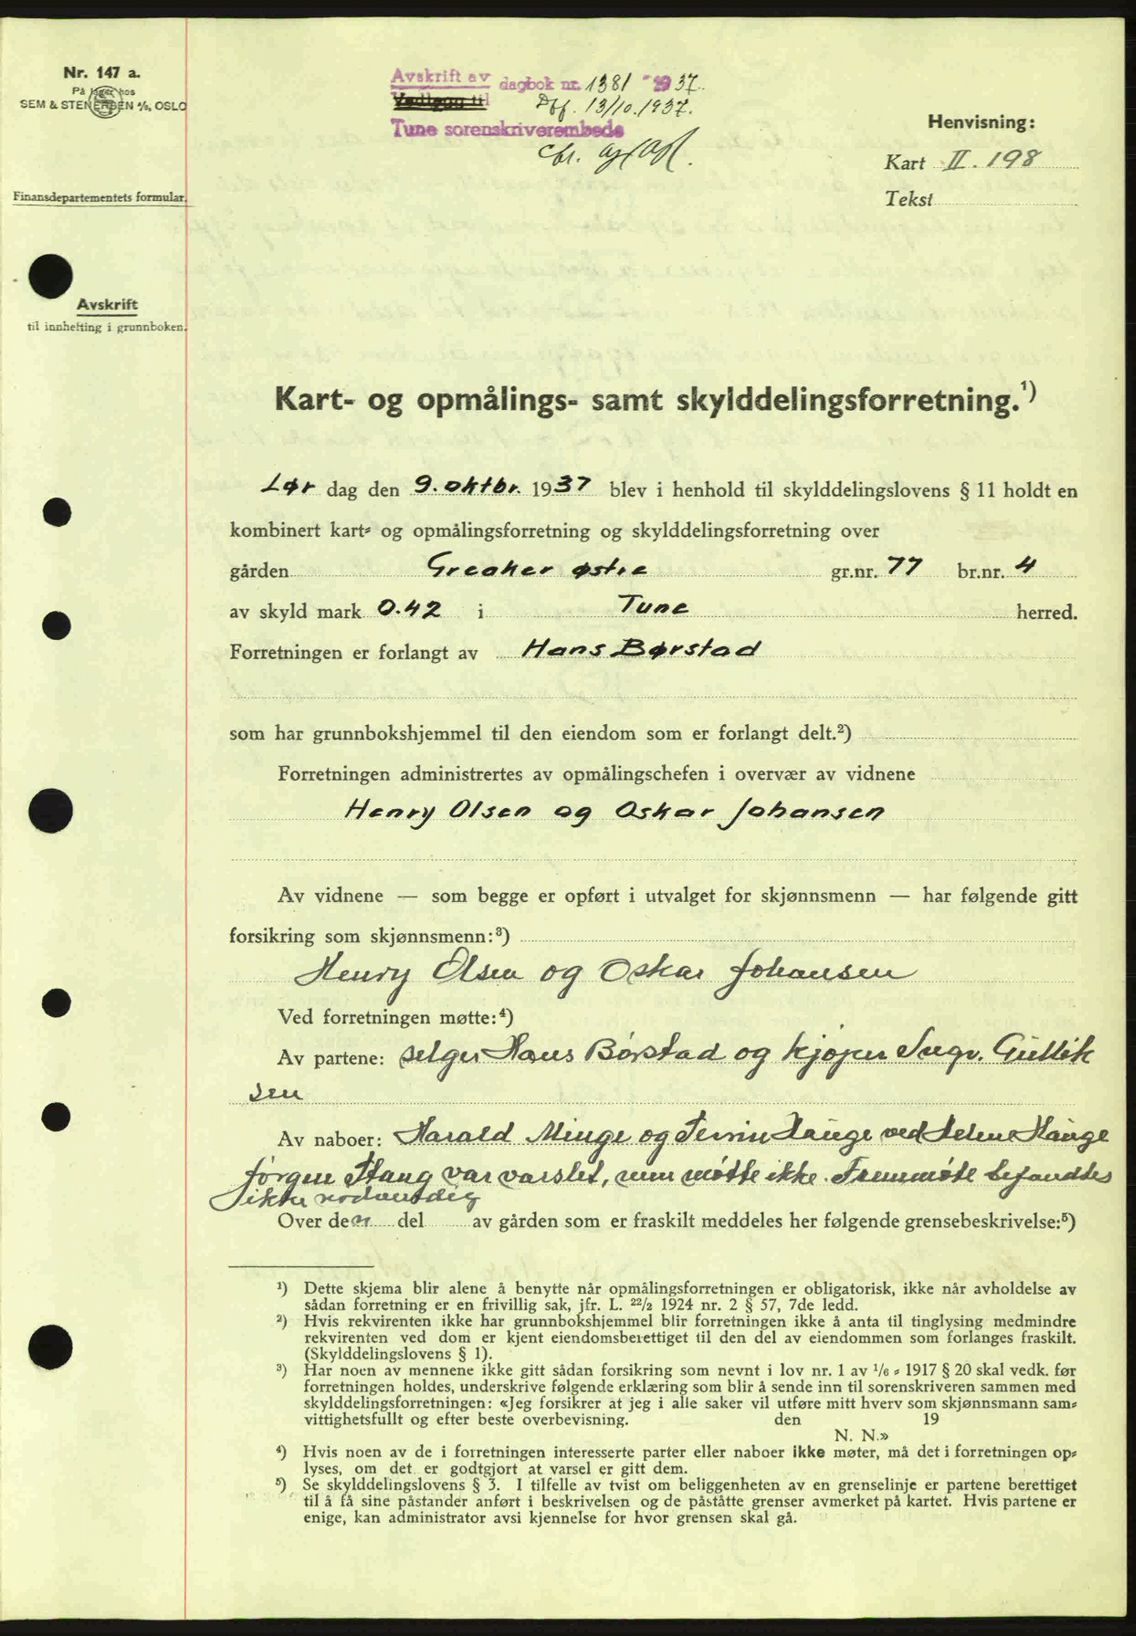 Nr. 147 a.
På lager hos
SEM & STENERSEN A/S, OSLO
Finansdepartementets formular.
Avskrift
til innhefting i grunnboken.
Avskrift av dagbok nr. 1381 - 1937.
Vedlegg til 13/10.1937.
Tune sorenskriverembede
Henvisning:
Kart II. 198
Tekst
Kart- og opmålings- samt skylddelingsforretning.¹)
Lør dag den 9. oktbr. 1937 blev i henhold til skylddelingslovens § 11 holdt en
kombinert kart- og opmålingsforretning og skylddelingsforretning over
gården Greaker østre gr.nr. 77 br.nr. 4
av skyld mark 0.42 i Tune herred.
Forretningen er forlangt av Hans Børstad
som har grunnbokshjemmel til den eiendom som er forlangt delt.²)
Forretningen administrertes av opmålingschefen i overvær av vidnene
Henry Olsen og Oskar Johansen
Av vidnene — som begge er opført i utvalget for skjønnsmenn — har følgende gitt
forsikring som skjønnsmenn:³)
Henry Olsen og Oskar Johansen
Ved forretningen møtte:⁴)
Av partene: selger Hans Børstad og kjøper Ingv. Gullik
sen
Av naboer: Harald Minge og Hauge ved Helene Hauge
Jørgen Stang var varslet, men møtte ikke. Fremmøte befandtes
ikke nødvendig
Over den del av gården som er fraskilt meddeles her følgende grensebeskrivelse:⁵)
¹) Dette skjema blir alene å benytte når opmålingsforretningen er obligatorisk, ikke når avholdelse av
sådan forretning er en frivillig sak, jfr. L. 22/2 1924 nr. 2 § 57, 7de ledd.
²) Hvis rekvirenten ikke har grunnbokshjemmel blir forretningen ikke å anta til tinglysing medmindre
rekvirenten ved dom er kjent eiendomsberettiget til den del av eiendommen som forlanges fraskilt.
(Skylddelingslovens § 1).
³) Har noen av mennene ikke gitt sådan forsikring som nevnt i lov nr. 1 av 1/6 - 1917 § 20 skal vedk. før
forretningen holdes, underskrive følgende erklæring som blir å sende inn til sorenskriveren sammen med
skylddelingsforretningen: «Jeg forsikrer at jeg i alle saker vil utføre mitt hverv som skjønnsmann sam-
vittighetsfullt og efter beste overbevisning. den 19
N. N.»
⁴) Hvis noen av de i forretningen interesserte parter eller naboer ikke møter, må det i forretningen op-
lyses, om det er godtgjort at varsel er gitt dem.
⁵) Se skylddelingslovens § 3. I tilfelle av tvist om beliggenheten av en grenselinje er partene berettiget
til å få sine påstander anført i beskrivelsen og de påståtte grenser avmerket på kartet. Hvis partene er
enige, kan administrator avsi kjennelse for hvor grensen skal gå.